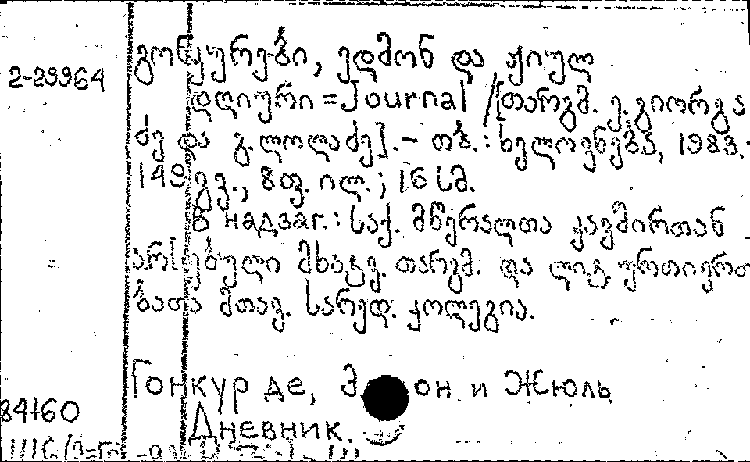 გონკურები, ედმონ და ჟიულ
2-29964
დღიური = Journal / [თარგმ. ე. გიორგა
ძე და გ. ლოლაძე]. – თბ. : ხელოვნება, 1983. -
149 გვ., 8 ფ. ილ. ; 16 სმ.
В надзаг. : საქ. მწერალთა კავშირთან
არსებული მხატვ. თარგმ. და ლიტ. ურთიერთ
ბათა მთავ. სარედ. კოლეგია.
Гонкур де, Э и Жюль
84160
Дневник.